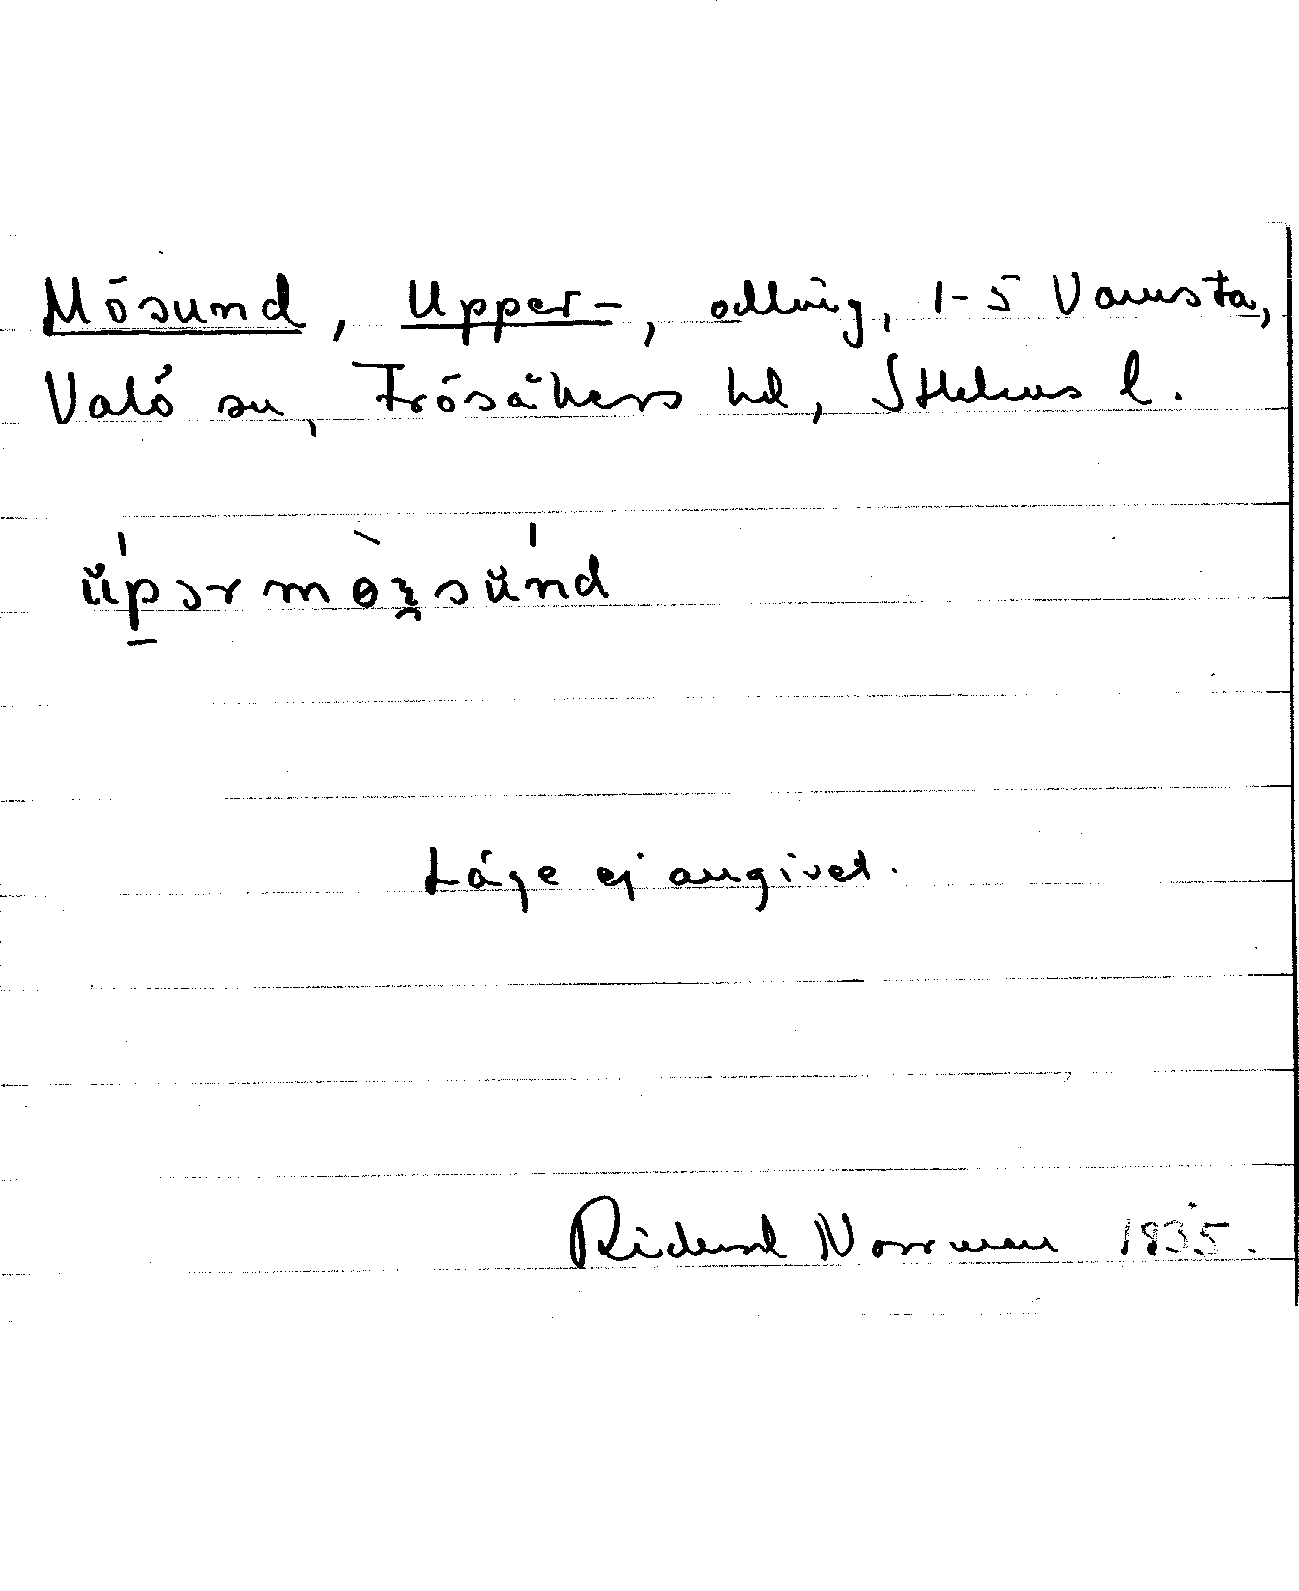 Mösund, Upper-, odling, 1-5 Vamsta,
Valö sn, Frösåkers hd, Sthlms l.
Läge ej angivet.
Rickard Norrman 1935.